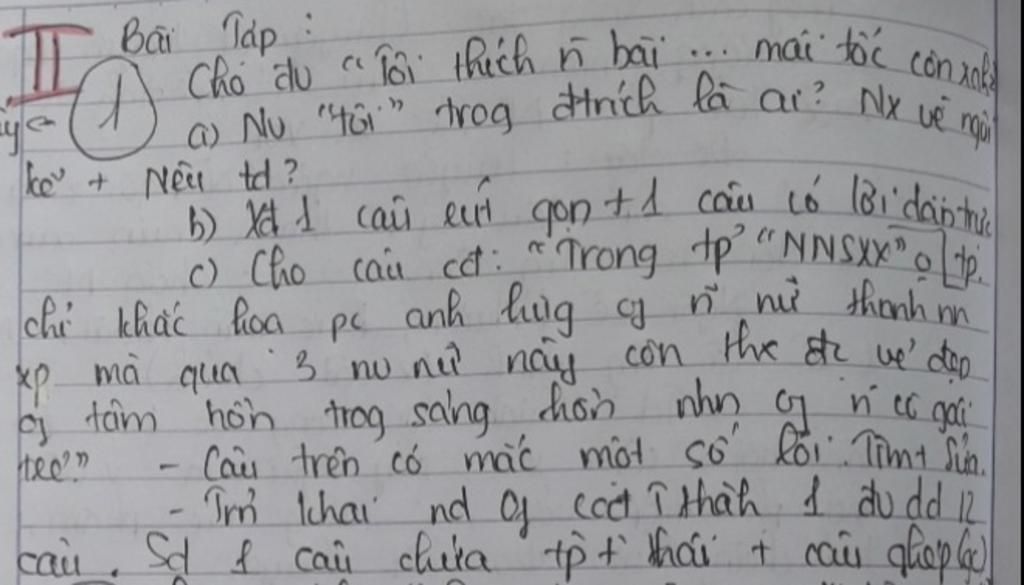 II Bài Tập:
1 Cho đv "Tôi thích n~ bài ... mái tóc còn xanh
a) Nv "tôi" trog đtrích là ai? Nx về ngôi
kể + Nêu td?
b) Xđ 1 câu rút gọn + 1 câu có lời dẫn trực
c) Cho câu cđ: "Trong tp' "NNSXX" o [tp.
chỉ khắc hoạ pc anh hùg cg n~ nữ thanh nn
xp mà qua 3 nv nữ này còn thx đc vẻ đẹp
cg tâm hồn trog sáng hồn nhn cg n~ cc gái
trẻ" - Câu trên có mắc một số lỗi. Tìm + sửa.
- Trh khai nd cg ccđ thàh 1 đv dd 12
câu. Sd 1 câu chứa tp tì thái + câu ghép (gc)